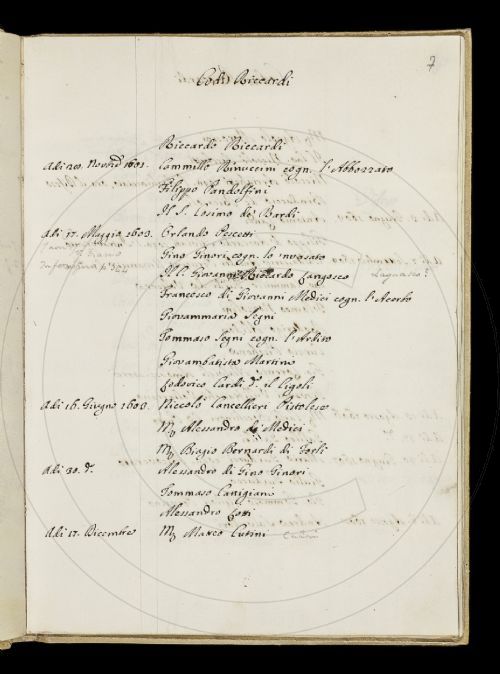 7
Codi Riccardi
Riccardo Riccardi
Adi 20. Novre 1601. Cammillo Rinuccini cogn. l'Abbozzato
Filippo Pandolfini
Il S. Cosimo de' Bardi
Adi 17. Maggio 1603. Orlando Pescetti
Gino Ginori cogn. lo 'nvasato
Il S. Giovanni Riccardo fangoso
Francesco di Giovanni Medici cogn. l'Acerbo
Giovammaria Segni
Tommaso Segni cogn. l'Ardito
Giovambatista Martini
Lodovico Cardi d.o il Cigoli
Adi 16. Giugno 1603. Niccolò Cancellieri Pistolese
M. Alessandro de' Medici
M. Biagio Bernardi di Forlì
Adi 30. d.o Alessandro di Gino Ginori
Tommaso Canigiani
Alessandro Lotti
Adi 17. Dicembre M. Marco Cutini